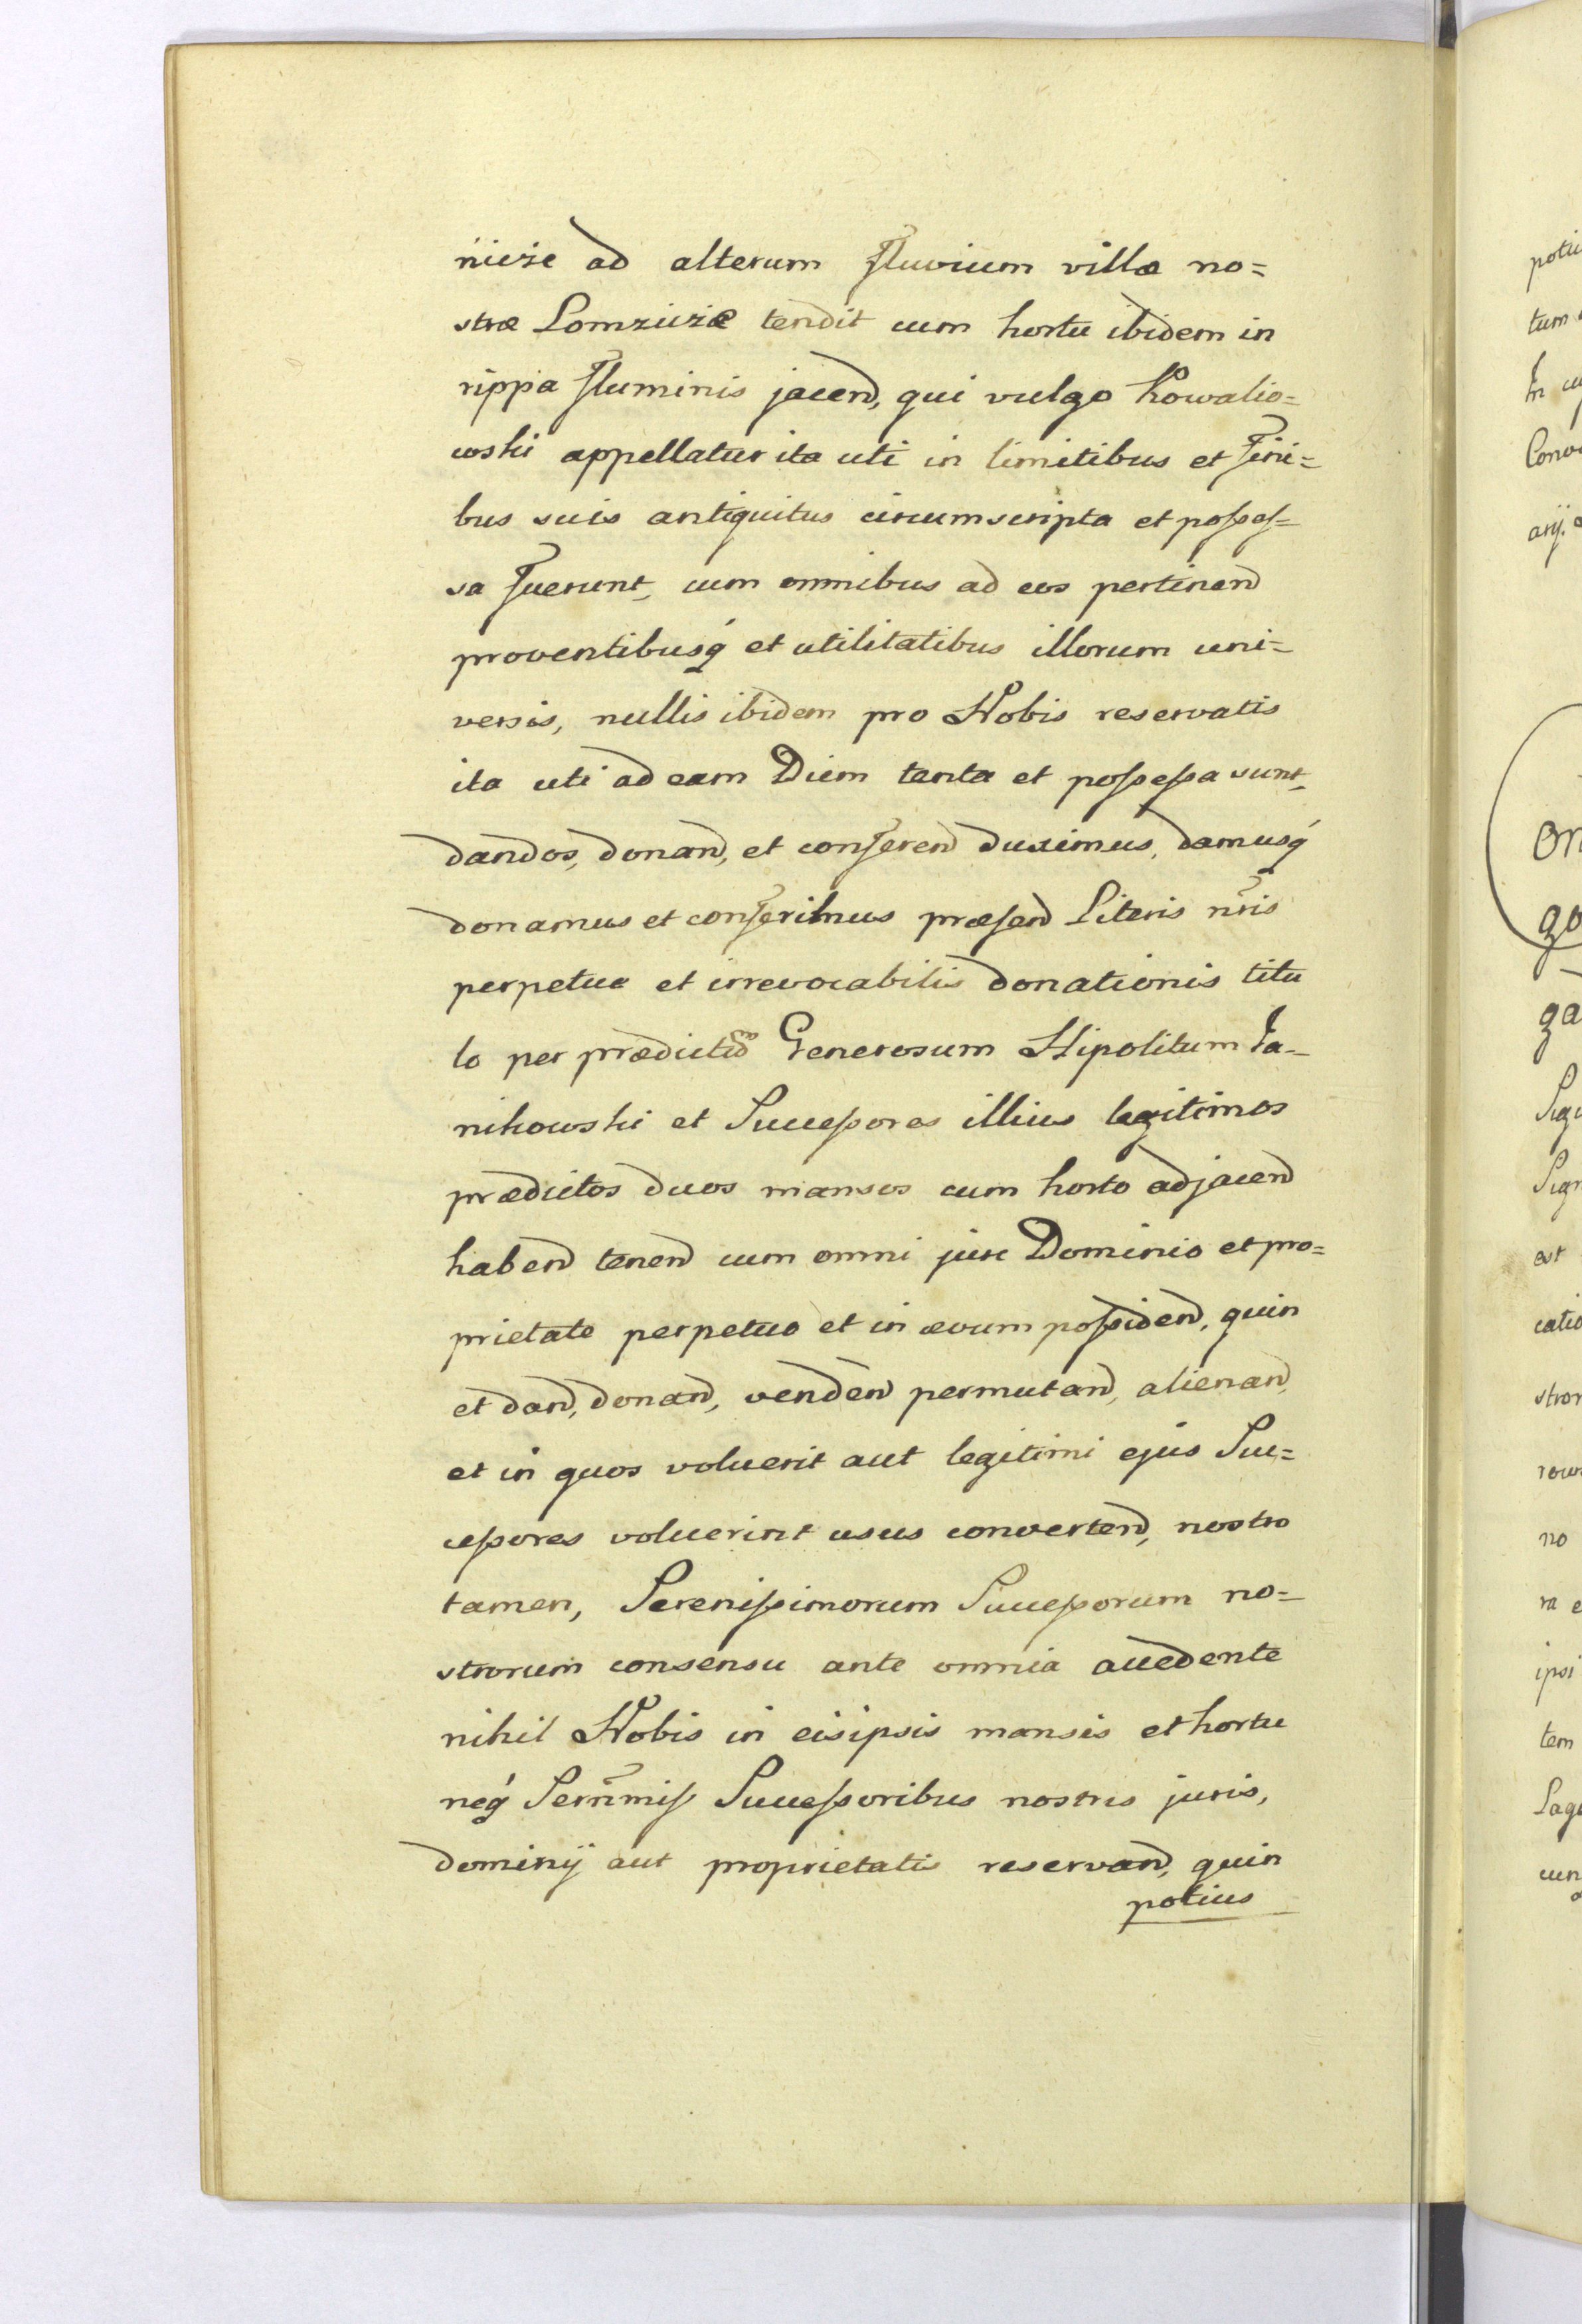 niczie ad alterum fluvium villæ no=
stræ Lomzicziæ tendit cum hortu ibidem in
rippa fluminis jacend, qui vulgo Kowalio=
wski appellatur ita uti in limitibus et fini=
bus suis antiquitus circumscripta et posses=
sa fuerunt, cum omnibus ad eos pertinend
proventibusq́ et utilitatibus illorum uni=
versis, nullis ibidem pro Nobis reservatis
ita uti ad eam Diem tenta et possessa sunt,
dandos, donand, et conferend duximus, damusq́
donamus et conferimus præsend Literis nr̃is
perpetuæ et irrevocabilis donationis titu
lo per prædictũ Generosum Hipolitum Ja-
nikowski et Successores illius legitimos
prædictos duos mansos cum horto adjacend
habend tenend cum omni jure Dominio et pro=
prietate perpetuo et in ævum possidend, quin
et dand, donand, vendend permutand, alienand,
et in quos voluerit aut legitimi ejus Suc=
cessores voluerint usus convertend, nostro
tamen, Serenissimorum Successorum no=
strorum consensu ante omnia accedente
nihil Nobis in eisipsis mansis et hortu
neq́ Serñmiss Successoribus nostris juris,
dominij aut proprietatis reservand, quin
potius